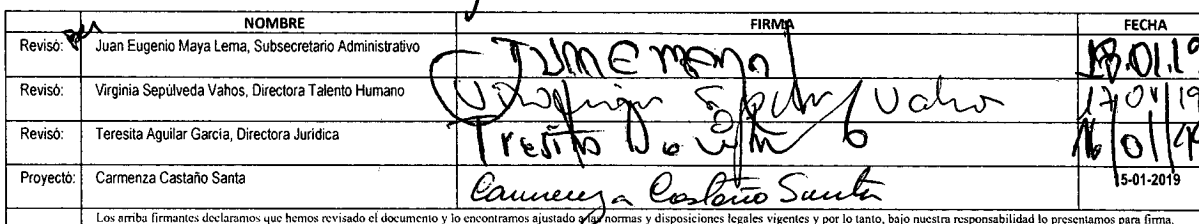 NOMBRE FIRMA FECHA
Revisó: Juan Eugenio Maya Lema, Subsecretario Administrativo 18.01.19
Revisó: Virginia Sepúlveda Vahos, Directora Talento Humano Virginia Sepúlveda Vahos 17/01/19
Revisó: Teresita Aguilar Garcia, Directora Jurídica 16/01/19
Proyectó: Carmenza Castaño Santa Carmenza Castaño Santa 15-01-2019
Los arriba firmantes declaramos que hemos revisado el documento y lo encontramos ajustado a las normas y disposiciones legales vigentes y por lo tanto, bajo nuestra responsabilidad lo presentamos para firma.